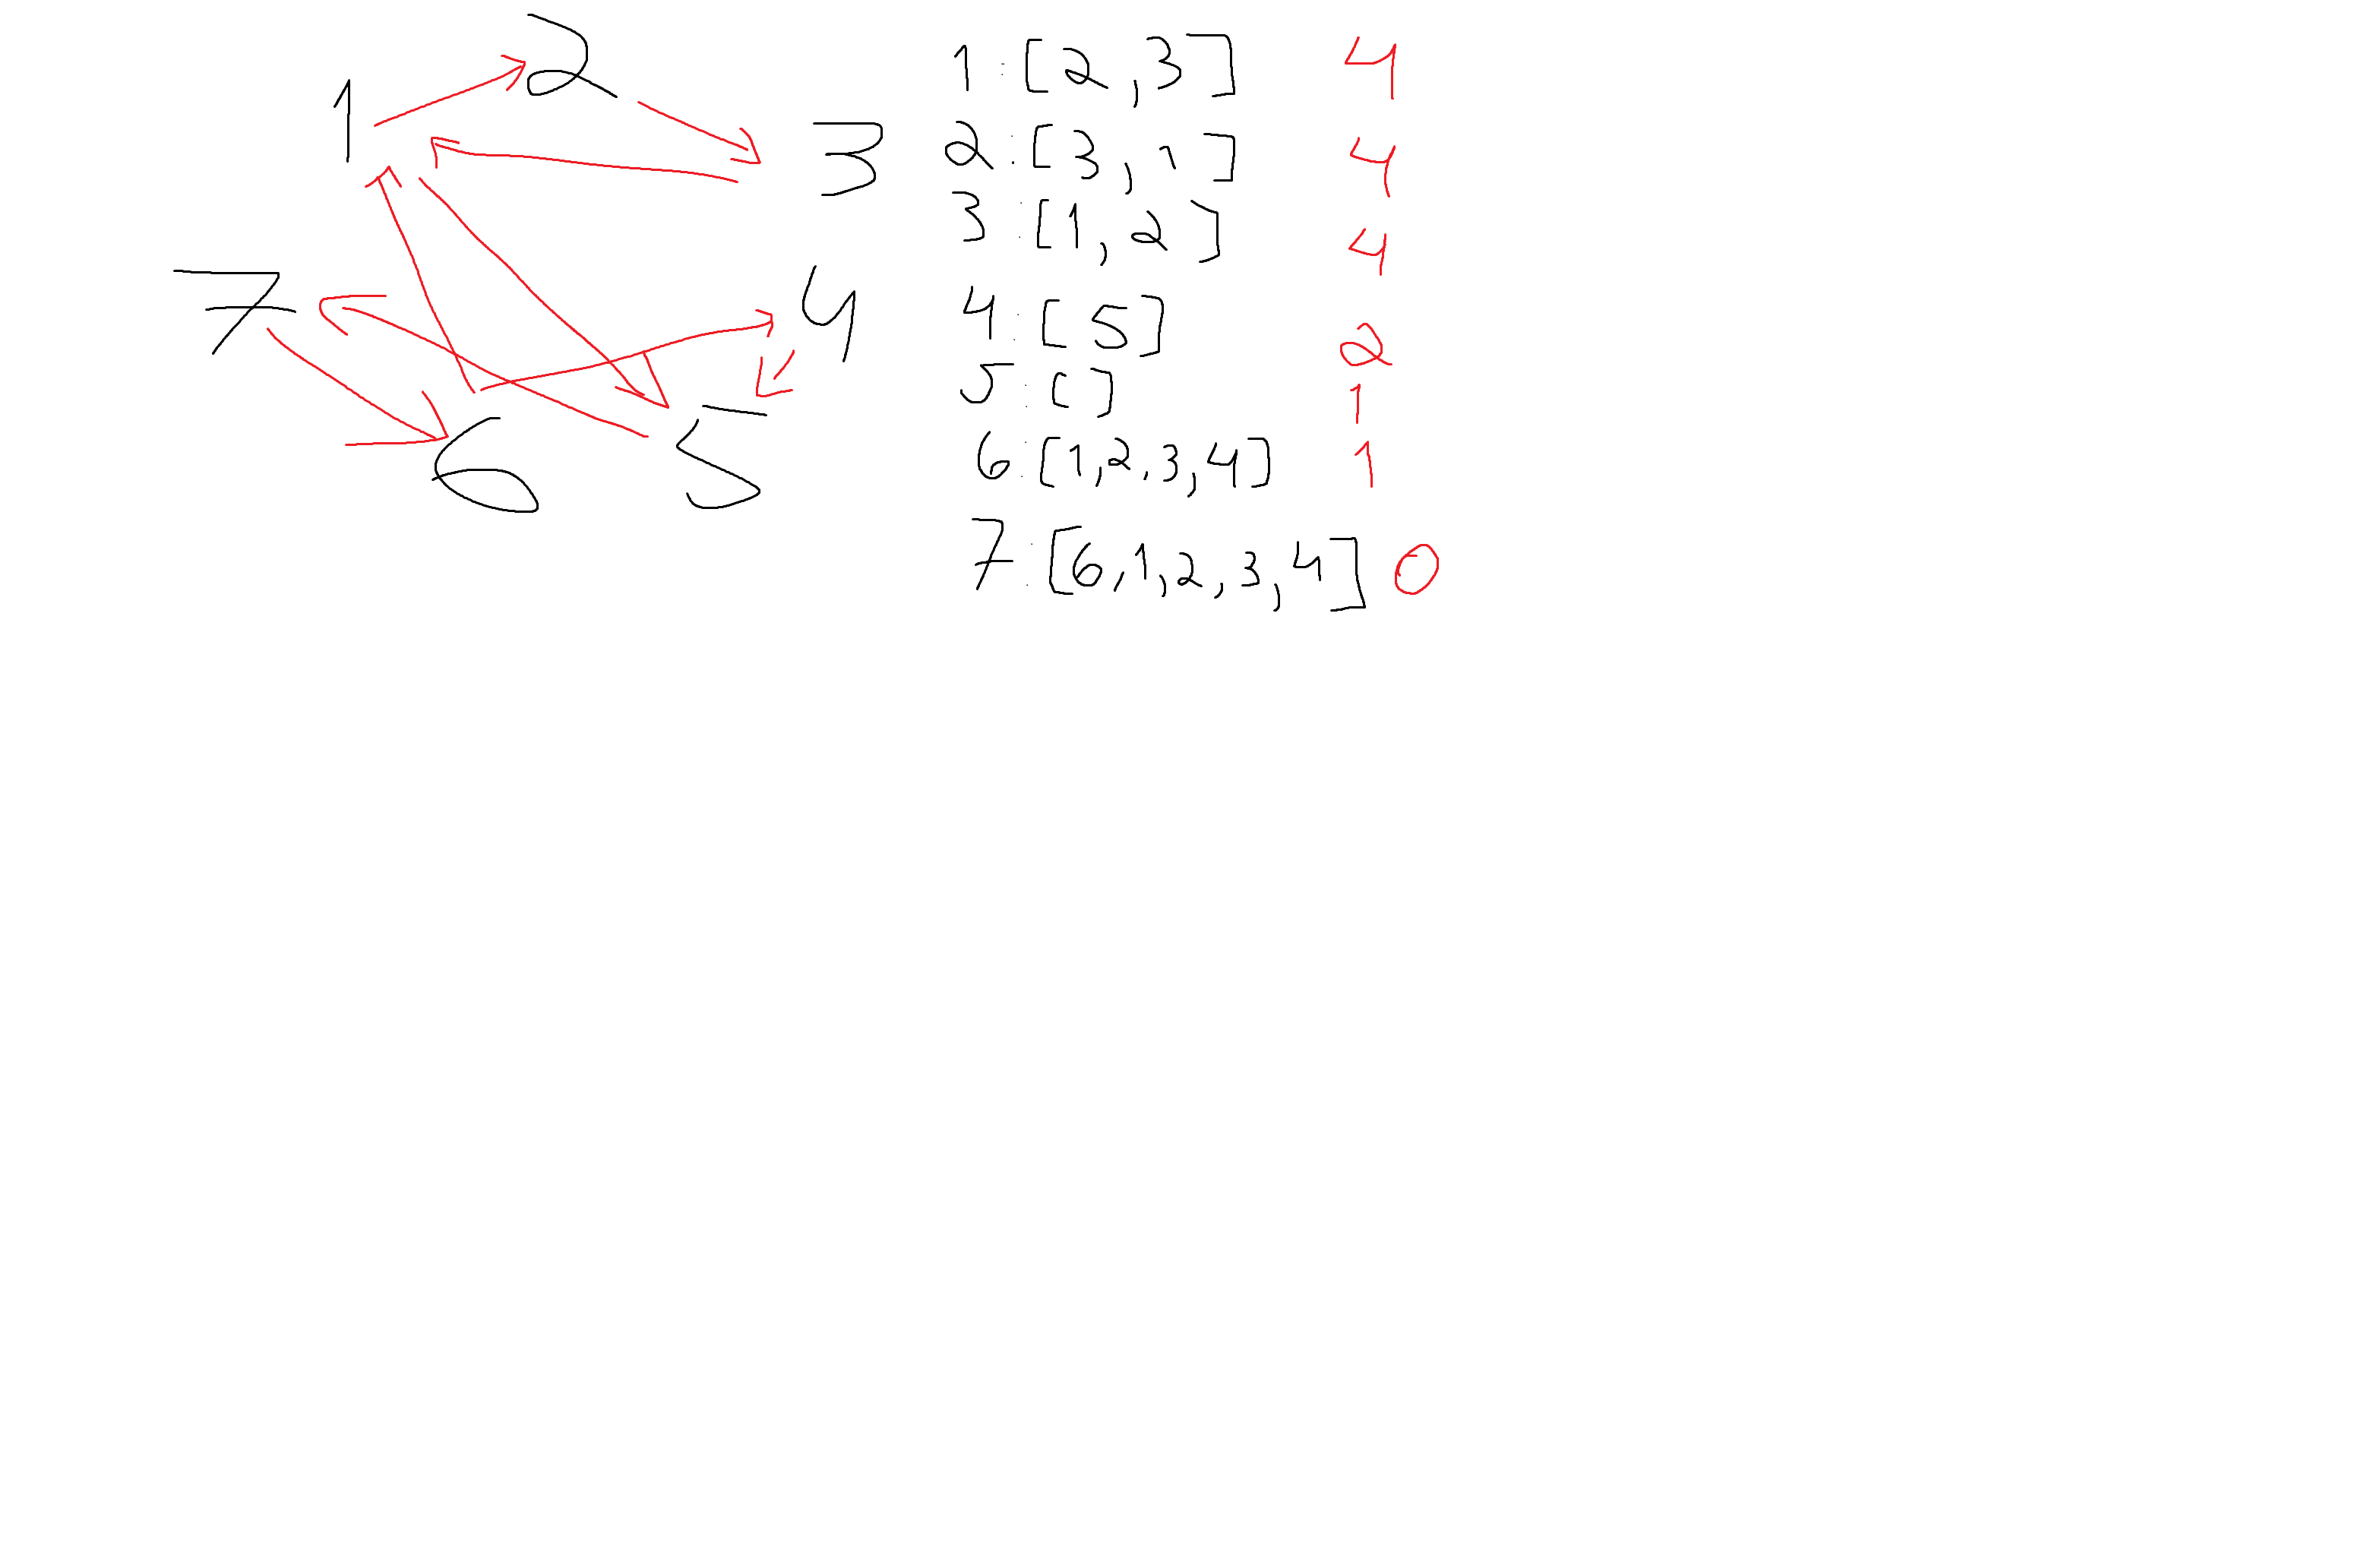 2
1
3
7
4
6
5
1:[2,3] 4
2:[3,1] 4
3:[1,2] 4
4:[5] 2
5:[] 1
6:[1,2,3,4] 1
7:[6,1,2,3,4] 0